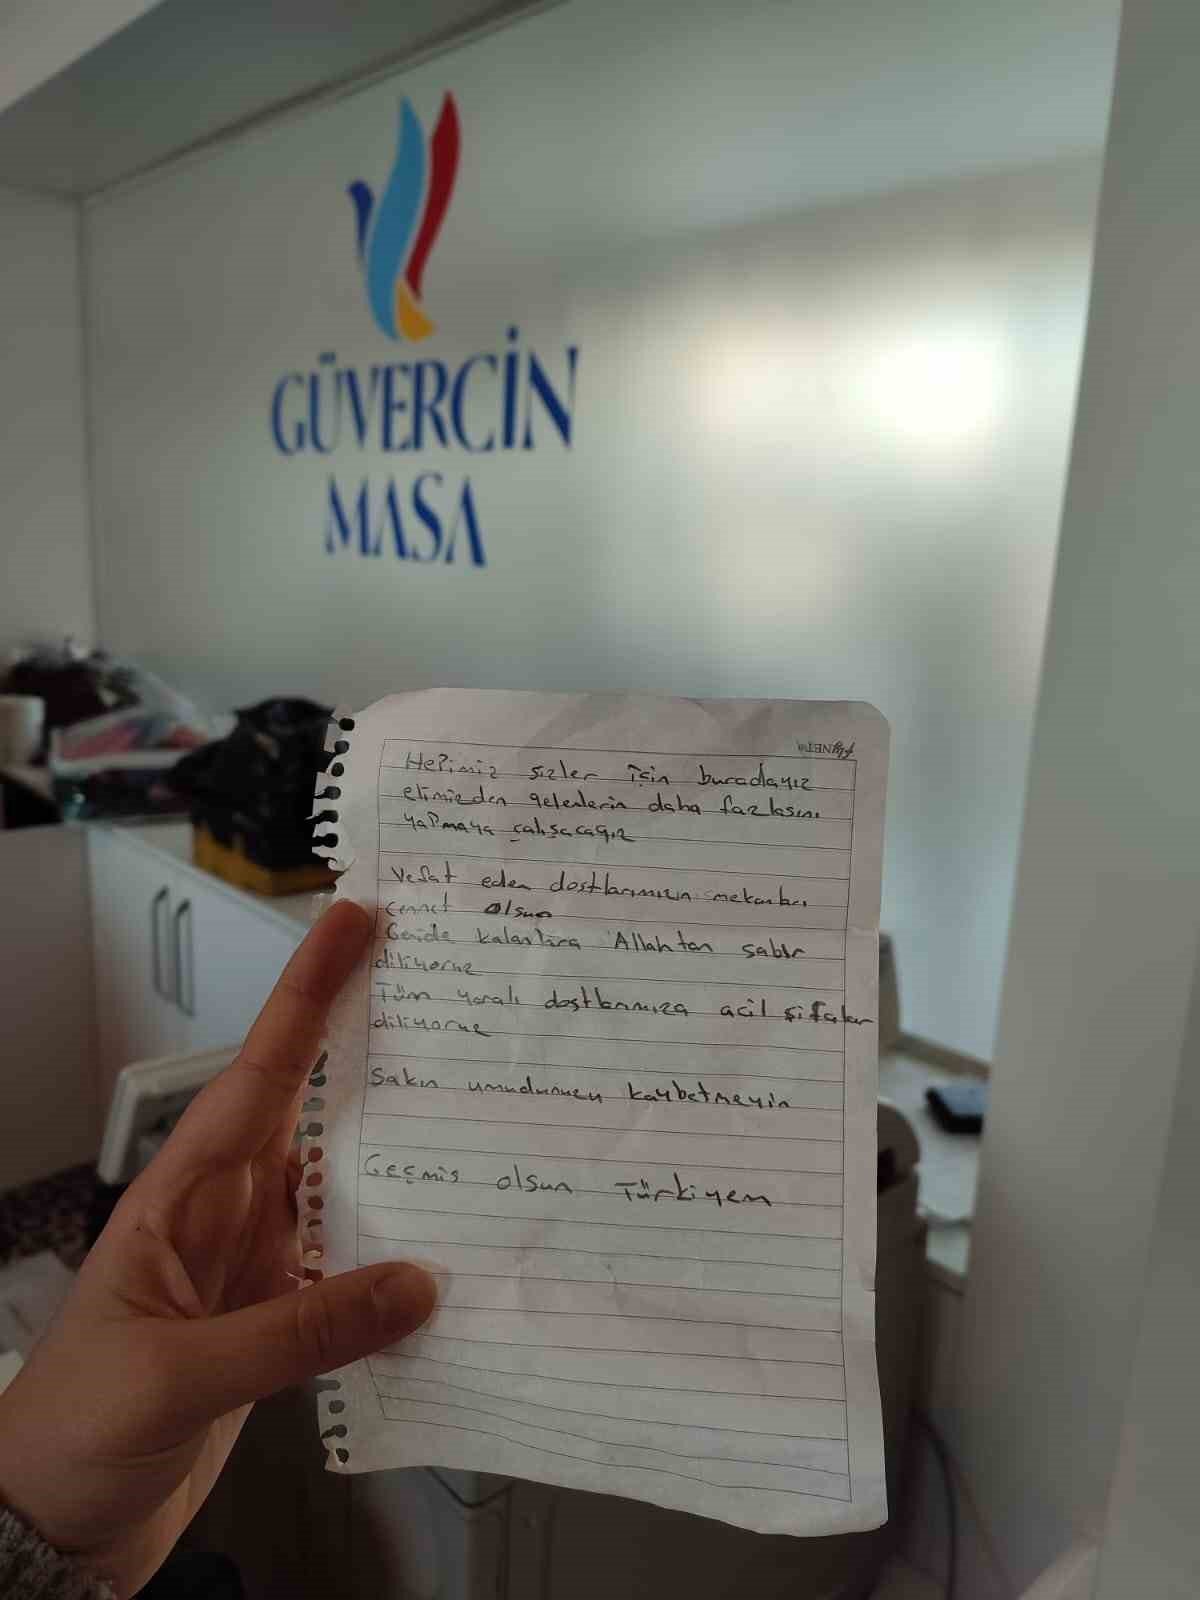 GÜVERCİN
MASA
Hepimiz sizler için buradayız
elimizden gelenlerin daha fazlasını
yapmaya çalışacağız
Vefat eden dostlarımızın mekanları
cennet olsun
Geride kalanlara Allahtan sabır
diliyoruz
Tüm yaralı dostlarımıza acil şifalar
diliyoruz
Sakın umudunuzu kaybetmeyin
Geçmis olsun Türkiyem